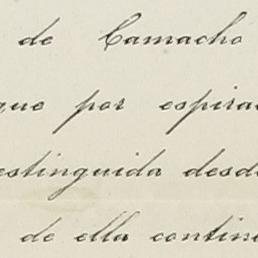 de Camacho
que por espirac
estinguida desde
de ella contine